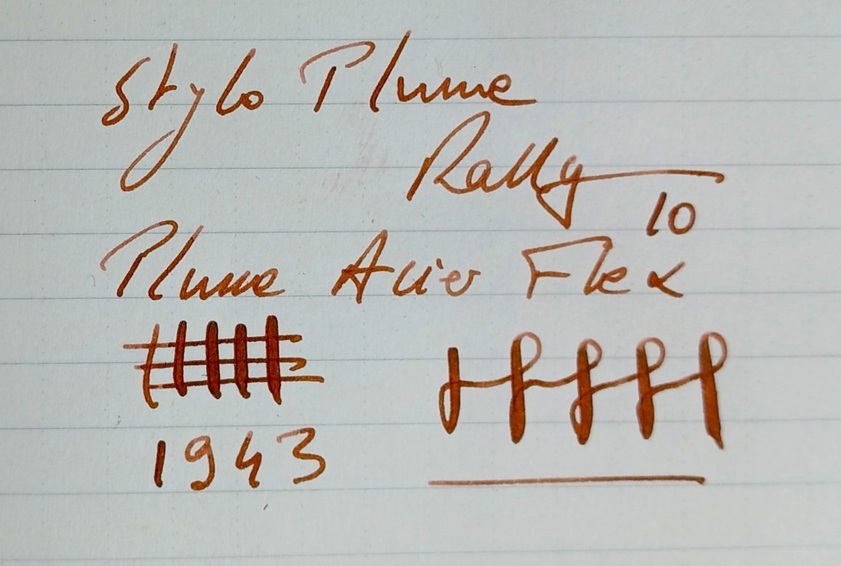 Stylo Plume
Rally
10
Plume Acier Flex
1943